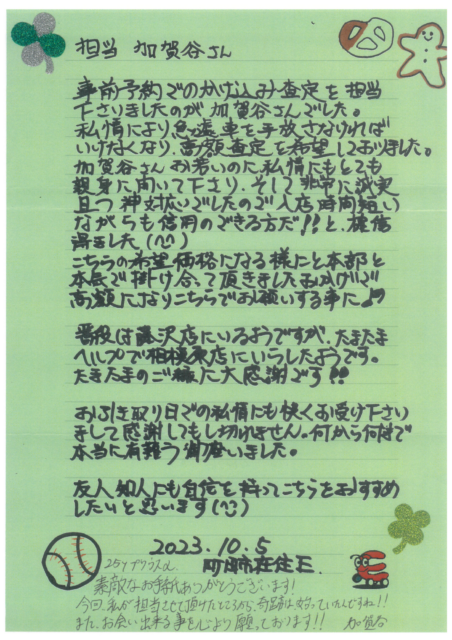 担当 加賀谷さん
事前予約でのかけ込み査定を担当
下さりましたのが加賀谷さんでした。
私情により急遽車を手放さなければ
いけなくなり、高額査定を希望しておりました。
加賀谷さんお若いのに私情にもとても
親身に聞いて下さり、そして非常に誠実
且つ神対応でしたので入店時間短い
ながらも信用のできる方だ!!と、確信
得ました(^^)
こちらの希望価格になる様にと本部と
本気で掛け合って頂きましたおかげで
高額になりこちらでお願いする事に♪
普段は藤沢店にいるようですが、たまたま
ヘルプで相模原店にいらしたようです。
たまたまのご縁に大感謝です!!
お引き取り日での私情にも快くお受け下さい
まして感謝してもしきれません。何から何まで
本当に有難う御座いました。
友人知人にも自信を持ってこちらをおすすめ
したいと思います(^^)
2023.10.5
町田市在住E.
素敵なお手紙ありがとうございます!
今回、私が担当させて頂けたところから、奇跡は始まっていたんですね!!
また、お会い出来る事を心より願っております!! 加賀谷